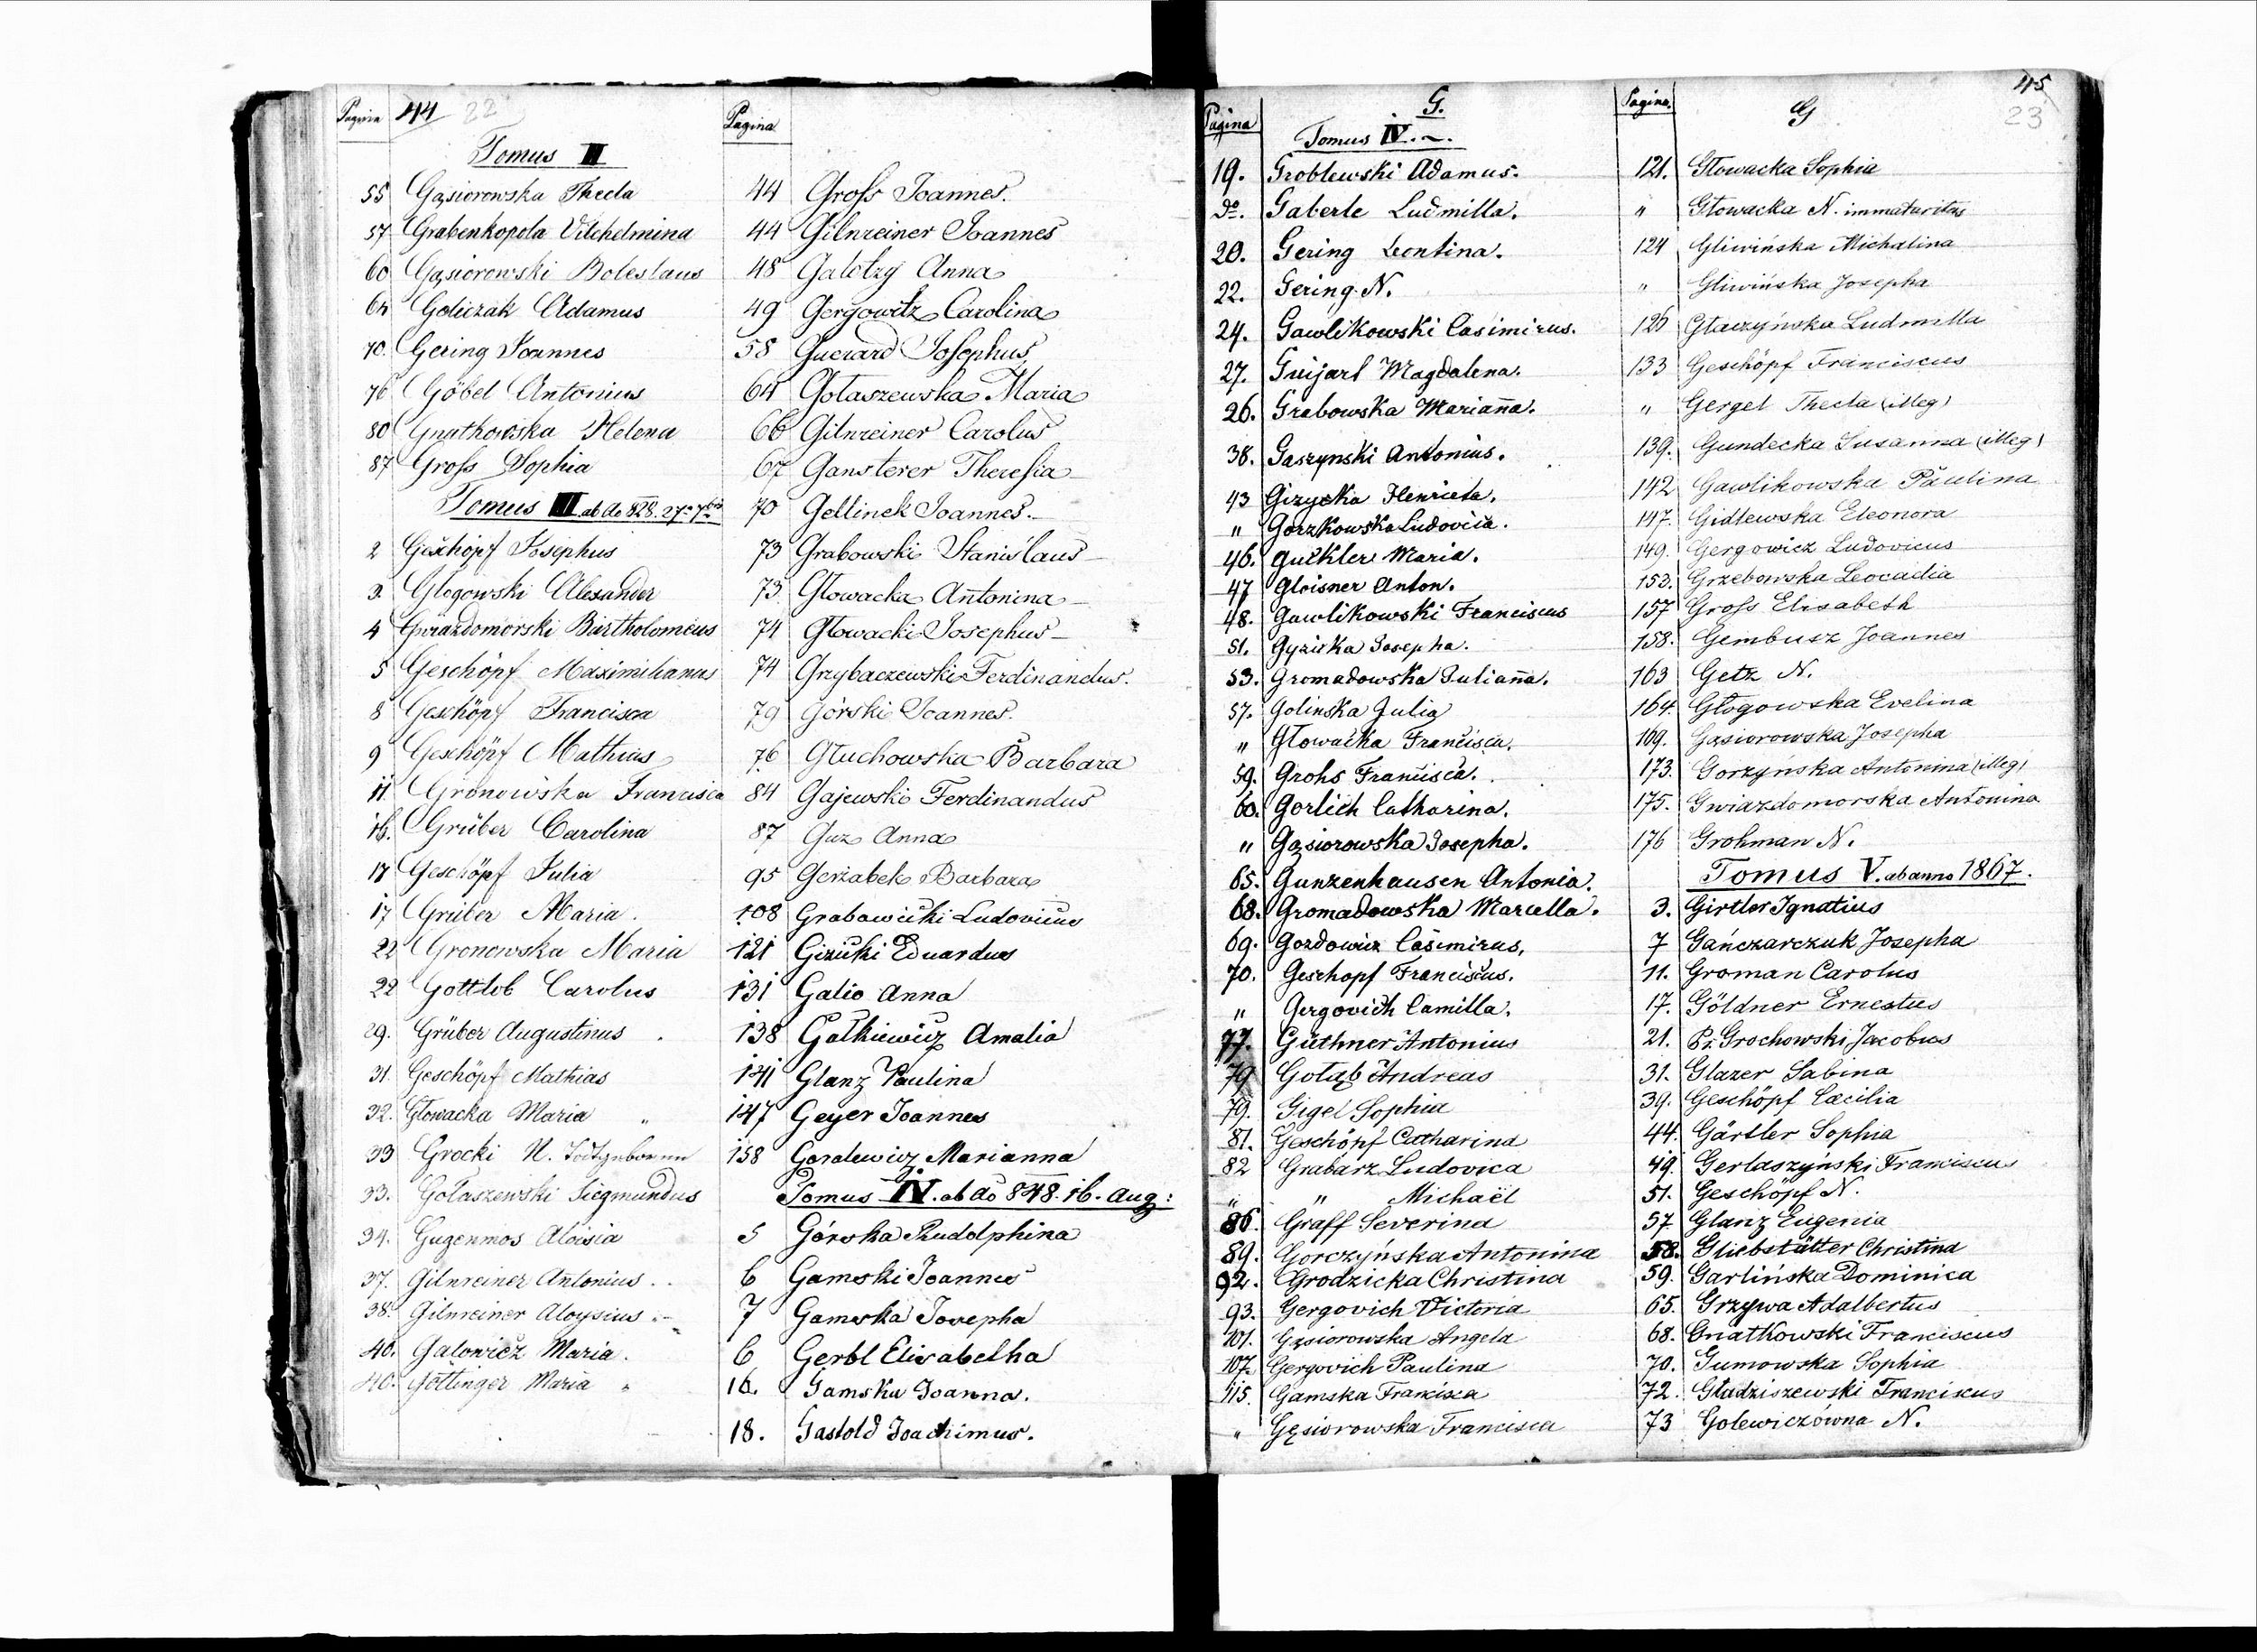 Pagina 44 22
Tomus II
55 Gąsiorowska Thecla
57 Grabenkopola Vilhelmina
60 Gąsiorowski Boleslaus
64 Goliczak Adamus
70. Gering Joannes
76 Göbel Antonius
80 Gnatkowska Helena
87 Groſs Sophia
Tomus III ab Ao 828. 27a 7bris
2 Geschöpf Josephus
3. Glogowski Alexander
4 Gwiazdomorski Bartholomeus
5 Geschöpf Maximilianus
8 Geschöpf Francisca
9 Geschöpf Mathias
11 Gronowska Francisca
16. Grüber Carolina
17 Geschöpf Julia
17 Grüber Maria.
22 Gronowska Maria
22 Gottlob Carolus
29. Grüber Augustinus.
31. Geschöpf Mathias
32. Głowacka Maria "
33 Grocki N.
33. Gołaszewski Siegmundus
34. Gugenmos Aloisia
37. Gilnreiner Antonius..
38. Gilnreiner Aloysius.
40. Galowicz Maria.
40. Göttinger Maria
Pagina
44 Groſs Joannes.
44 Gilnreiner Joannes
48 Galotzy Anna
49 Gergowitz Carolina
58 Guerard Joſephus
64 Gołaszewska Maria
66 Gilnreiner Carolus
67 Gansterer Thereſia
70 Gellinek Joannes.
73 Grabowski Stanislaus
73. Głowacka Antonina
74 Głowacki Josephus
74 Grzybaczewski Ferdinandus.
79 Górski Joannes.
76 Głuchowska Barbara
84 Gajewski Ferdinandus
87 Guz Anna
95 Gerzabek Barbara
108 Grabowiecki Ludovicus
121 Gizicki Eduardus
131 Galio Anna
138 Gałkiewicz Amalia
141 Glanz Paulina
147 Geyer Joannes
158 Goralewicz Marianna
Tomus IV. ab Ao 848. 16. Aug:
5 Górska Rudolphina
6 Gamski Joannes
7 Gamska Josepha
6 Gerbl Elisabetha
16. Gamska Joanna.
18. Gastold Joachimus.
Pagina G.
Tomus IV.
19. Groblewski Adamus.
do. Gaberle Ludmilla.
20. Gering Leontina.
22. Gering N.
24. Gawlikowski Casimirus.
27. Guijarl Magdalena.
26. Grabowska Mariana.
38. Gaszynski Antonius.
43 Gizycka Henrieta.
" Gorzkowska Ludovica.
46. Guckler Maria.
47 Gloisner Anton.
48. Gawlikowski Franciscus
51. Gyzicka Josepha.
53. Gromadowska Juliana.
57. Golinska Julia
" Głowacka Francisca.
59. Grohs Francisca.
60. Gorlich Catharina.
" Gąsiorowska Josepha.
65. Gunzenhausen Antonia.
68. Gromadowska Marcella.
69. Gozdowicz Casimirus.
70. Geschopf Franciscus.
" Gergovich Camilla.
77. Güthner Antonius
79 Gołąb Andreas
79. Gigel Sophia
81. Geschöpf Catharina
82 Grabarz Ludovica
" " Michaël
86. Graff Severina
89. Gorczyńska Antonina
92. Grodzicka Christina
93. Gergovich Victoria
101. Gąsiorowska Angela
107. Gergovich Paulina
115. Gamska Francisca
" Gęsiorowska Francisca
Pagina. G 45
23
121. Głowacka Sophia
" Głowacka N. immaturitas
124 Gliwińska Michalina
" Gliwińska Josepha
126 Głaczyńska Ludmilla
133 Geschöpf Franciscus
" Gergel Thecla (illeg)
139. Gundecka Susanna (illeg)
142 Gawlikowska Paulina
147. Gidlewska Eleonora
149. Gergowicz Ludovicus
153. Grzebowska Leocadia
157 Groſs Elisabeth
158. Gembusz Joannes
163 Getz N.
164. Głogowska Evelina
169. Gąsiorowska Josepha
173. Gorzyńska Antonina (illeg)
175. Gwiazdomorska Antonina
176 Grohman N.
Tomus V. ab anno 1867.
3. Girtler Ignatius
7 Gańczarczuk Josepha
11. Groman Carolus
17. Göldner Ernestus
21. Pr. Grochowski Jacobus
31. Glazer Sabina
39. Geschöpf Cæcilia
44. Gärtler Sophia
49. Gerlaszyński Franciscus
51. Geschöpf N.
57 Glanz Eugenia
58. Gliebstätter Christina
59. Garlińska Dominica
65. Grzywa Adalbertus
68. Gnatkowski Franciscus
70. Gumowska Sophia
72. Gładziszewski Franciscus
73 Golewiczówna N.